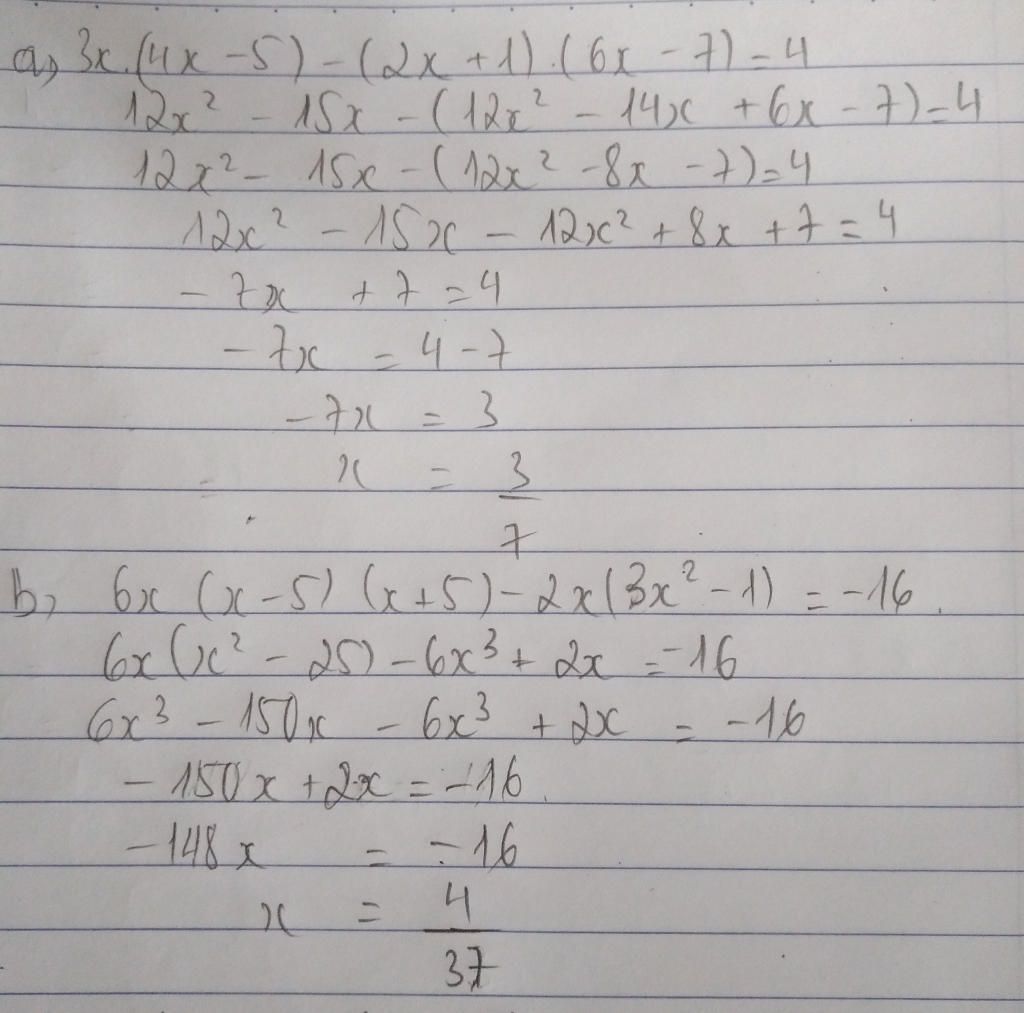 a, 3x.(4x - 5) - (2x + 1).(6x - 7) = 4
12x² - 15x - (12x² - 14x + 6x - 7) = 4
12x² - 15x - (12x² - 8x - 7) = 4
12x² - 15x - 12x² + 8x + 7 = 4
- 7x + 7 = 4
- 7x = 4 - 7
- 7x = 3
x = 3/7
b, 6x (x - 5) (x + 5) - 2x(3x² - 1) = -16.
6x(x² - 25) - 6x³ + 2x = -16
6x³ - 150x - 6x³ + 2x = -16
- 150x + 2x = -16.
- 148x = -16
x = 4/37